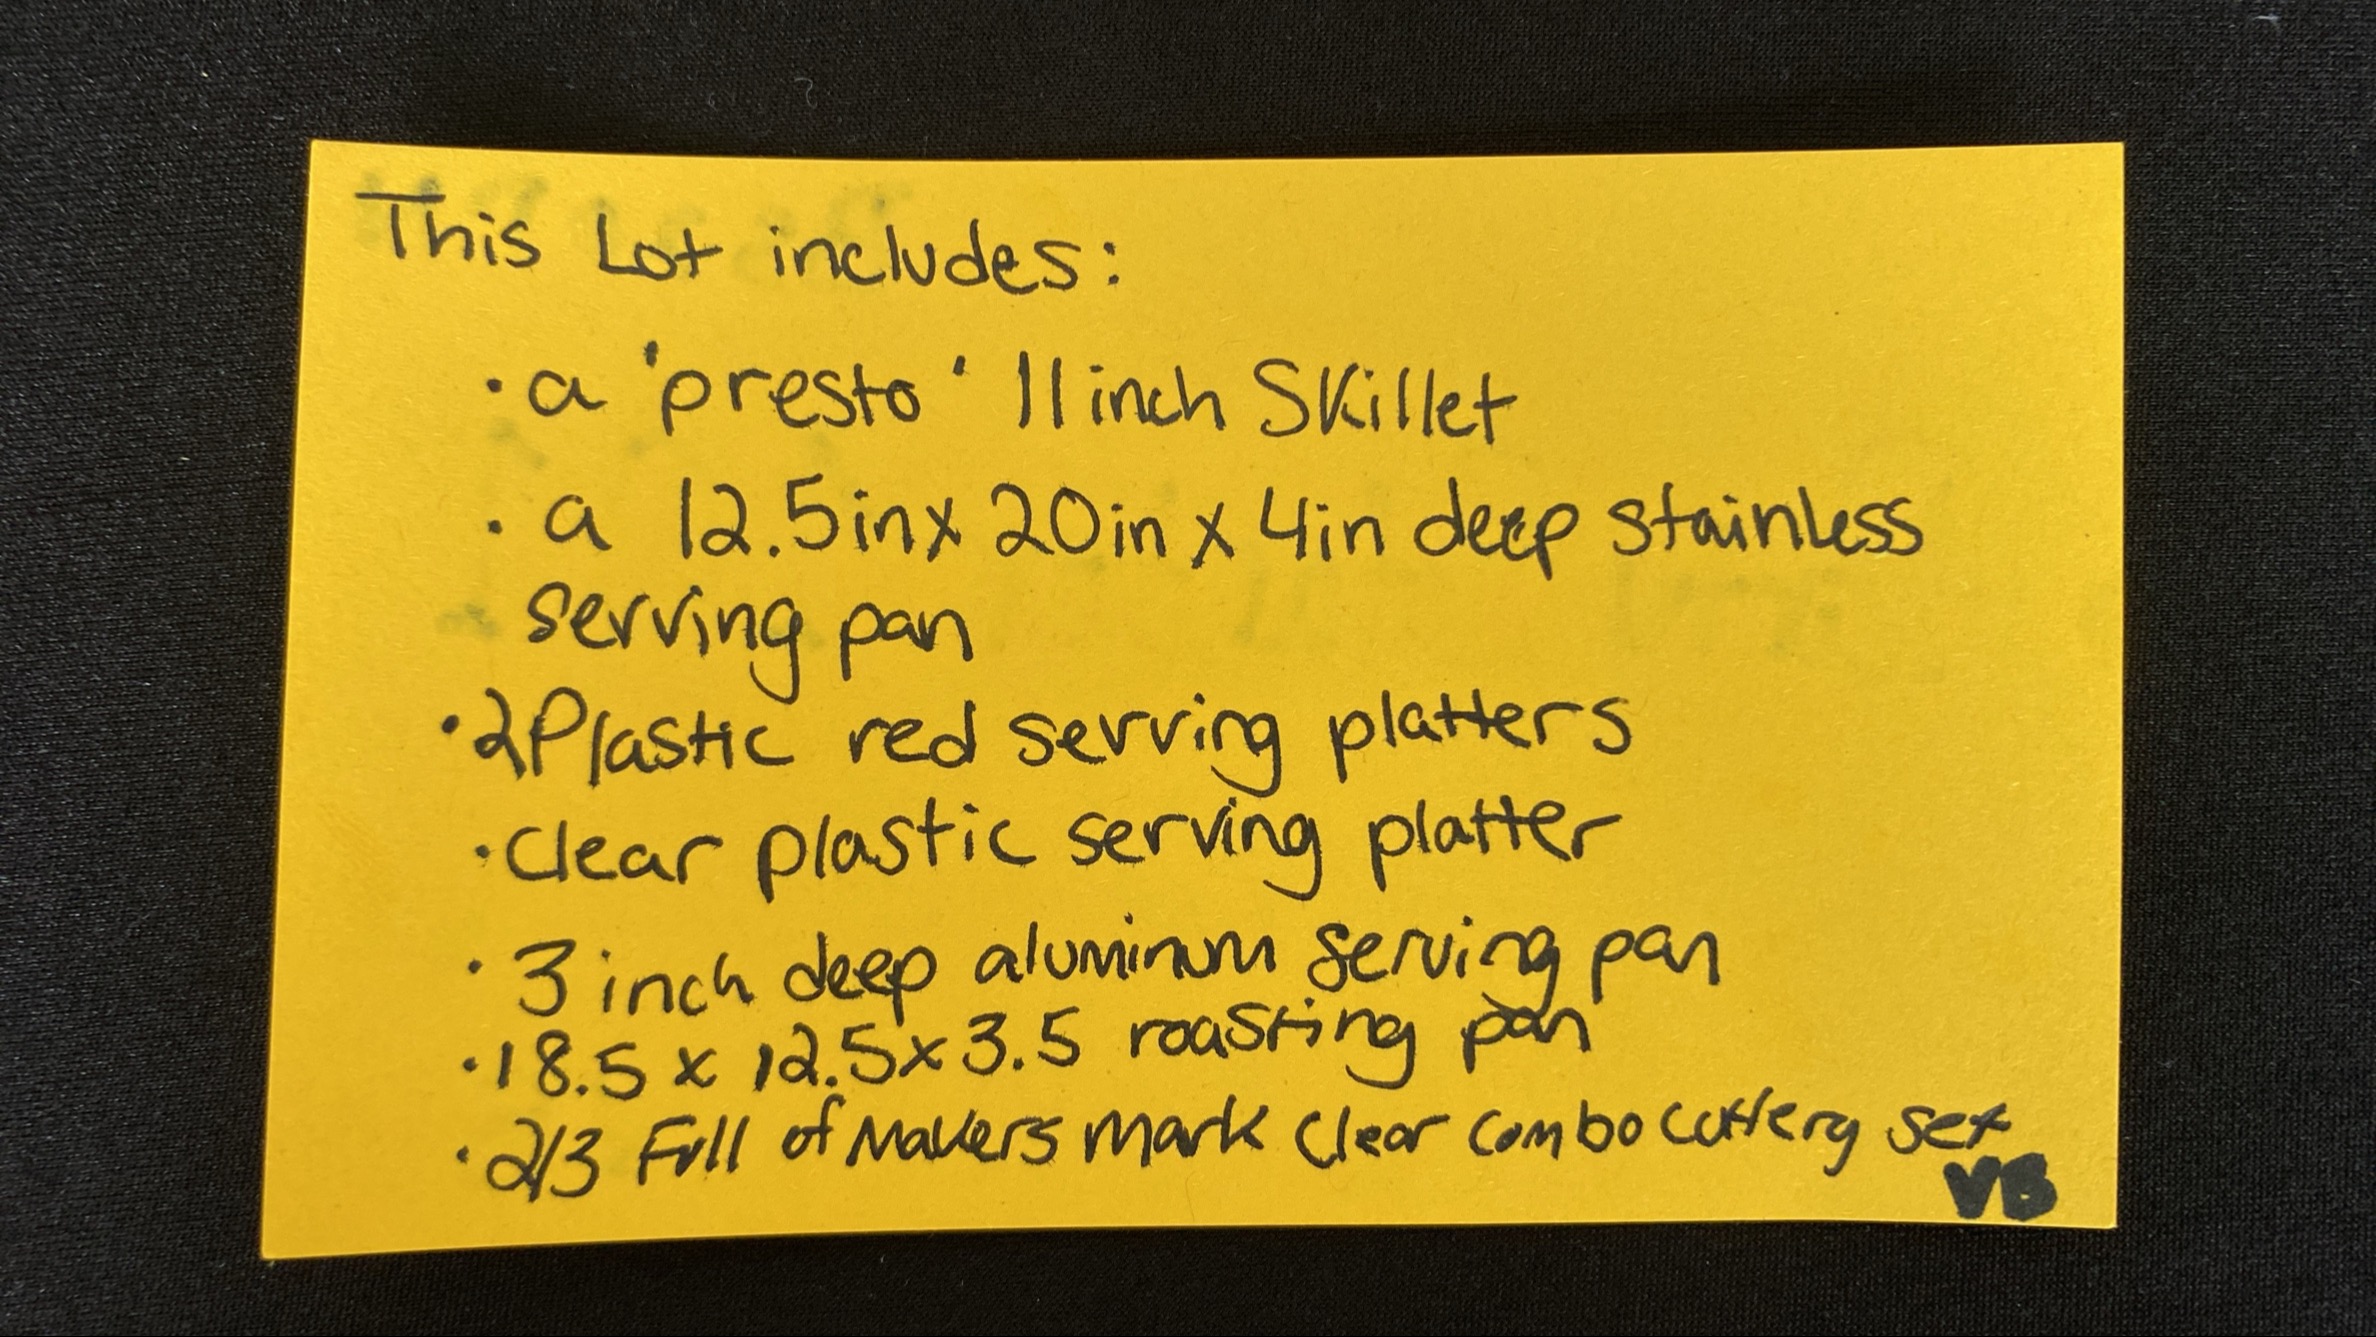 This Lot includes:
· a 'presto' 11 inch Skillet
· a 12.5in x 20in x 4in deep stainless
serving pan
· 2 Plastic red serving platters
· Clear plastic serving platter
· 3 inch deep aluminum serving pan
· 18.5 x 12.5 x 3.5 roasting pan
· 2/3 Full of Makers Mark Clear Combo cutlery set
VB